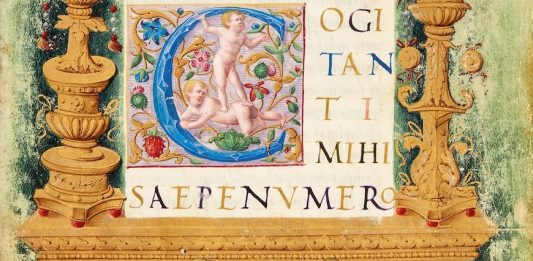 COGI
TAN
TI
MIHI
SAEPENVMERO